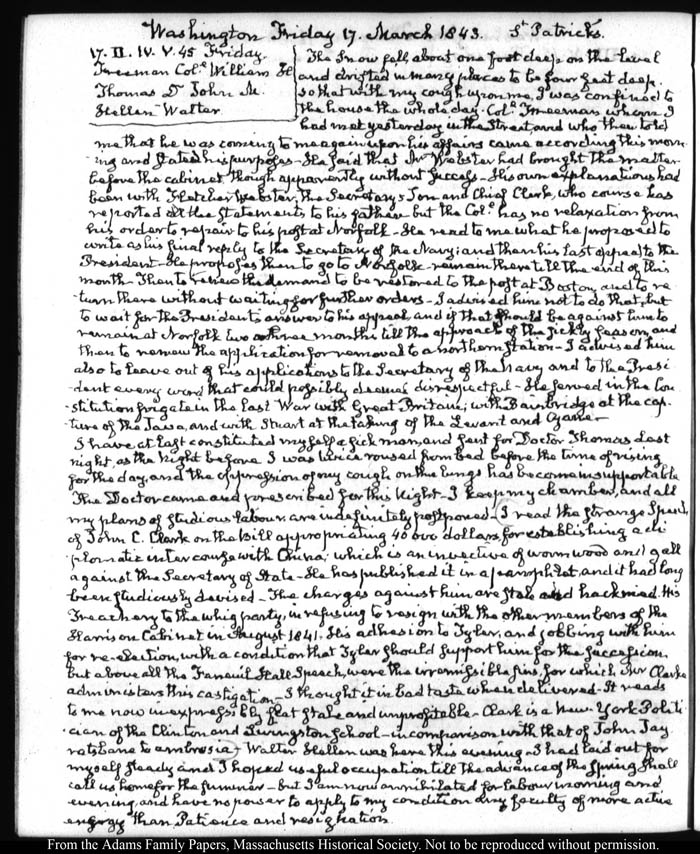 Washington Friday 17. March 1843. St Patricks.
17. II. IV. V. 45 Friday.
Freeman Col.l William H
Thomas Dr John M.
Hellen Walter
The Snow fell about one foot deep on the level
and drifted in many places to be four feet deep.
so that with my cough upon me, I was confined to
the house the whole day. Col.l Freeman whom I
had met yesterday in the Street, and who then told
me that he was coming to me again upon his affairs came according this morn-
-ing and stated his purposes - He said that Mr Webster had brought the matter
before the cabinet though apparently without success - His own explanations had
been with Fletcher Webster, the Secretary's Son and Chief Clerk, who course has
reported all the statements to his father but the Col.l has no relaxation from
his order to repair to his post at Norfolk - He read to me what he proposed to
write as his final reply to the Secretary of the Navy; and then his last appeal to the
President - He proposes then to go to Norfolk - remain there till the end of this
month - Then to renew the demand to be restored to the post at Boston, and to re-
-turn there without waiting for further orders - I advised him not to do that, but
to wait for the President's answer to his appeal, and if that should be against him to
remain at Norfolk two or three months till the approach of the sickly season, and
then to renew the application for removal to a northern station - I advised him
also to leave out of his applications to the Secretary of the Navy and to the Presi-
-dent every word that could possibly be deemed disrespectful - He served in the Con-
-stitution frigate in the last War with Great Britain; with Bainbridge at the cap-
-ture of the Java, and with Stuart at the taking of the Levant and Cyane -
I have at last constituted myself a sick man, and sent for Doctor Thomas last
night, as the Night before I was thrice roused from bed before the time of rising
for the day, and the oppression of my cough on the lungs has become insupportable
The Doctor came and prescribed for this Night - I keep my chamber, and all
my plans of studious labour are indefinitely postponed - I read the strange Speech
of John C. Clark on the Bill appropriating 40 000 dollars, for establishing a di-
-plomatic intercourse with China; which is an invective of wormwood and gall
against the Secretary of State - He has published it in a pamphlet, and it had long
been studiously devised - The charges against him are stale and hacknied. His
Treachery to the whig party, in refusing to resign with the other members of the
Harrison Cabinet in August 1841. His adhesion to Tyler, and jobbing with him
for re-election, with a condition that Tyler should support him for the succession.
but above all the Faneuil Hall Speech, were the irremissible sins, for which Mr Clarke
administers this castigation - I thought it in bad taste when delivered - It reads
to me now inexpressibly flat stale and unprofitable - Clark is a New-York Politi-
-cian of the Clinton and Livingston School - in comparison with that of John Jay
ratsbane to ambrosia - Walter Hellen was here this evening - I had laid out for
myself steady and I hoped useful occupation till the advance of the Spring shall
call us home for the summer - but I am now annihilated for labour morning and
evening, and have no power to apply to my condition any faculty of more active
energy than Patience and resignation.
From the Adams Family Papers, Massachusetts Historical Society. Not to be reproduced without permission.